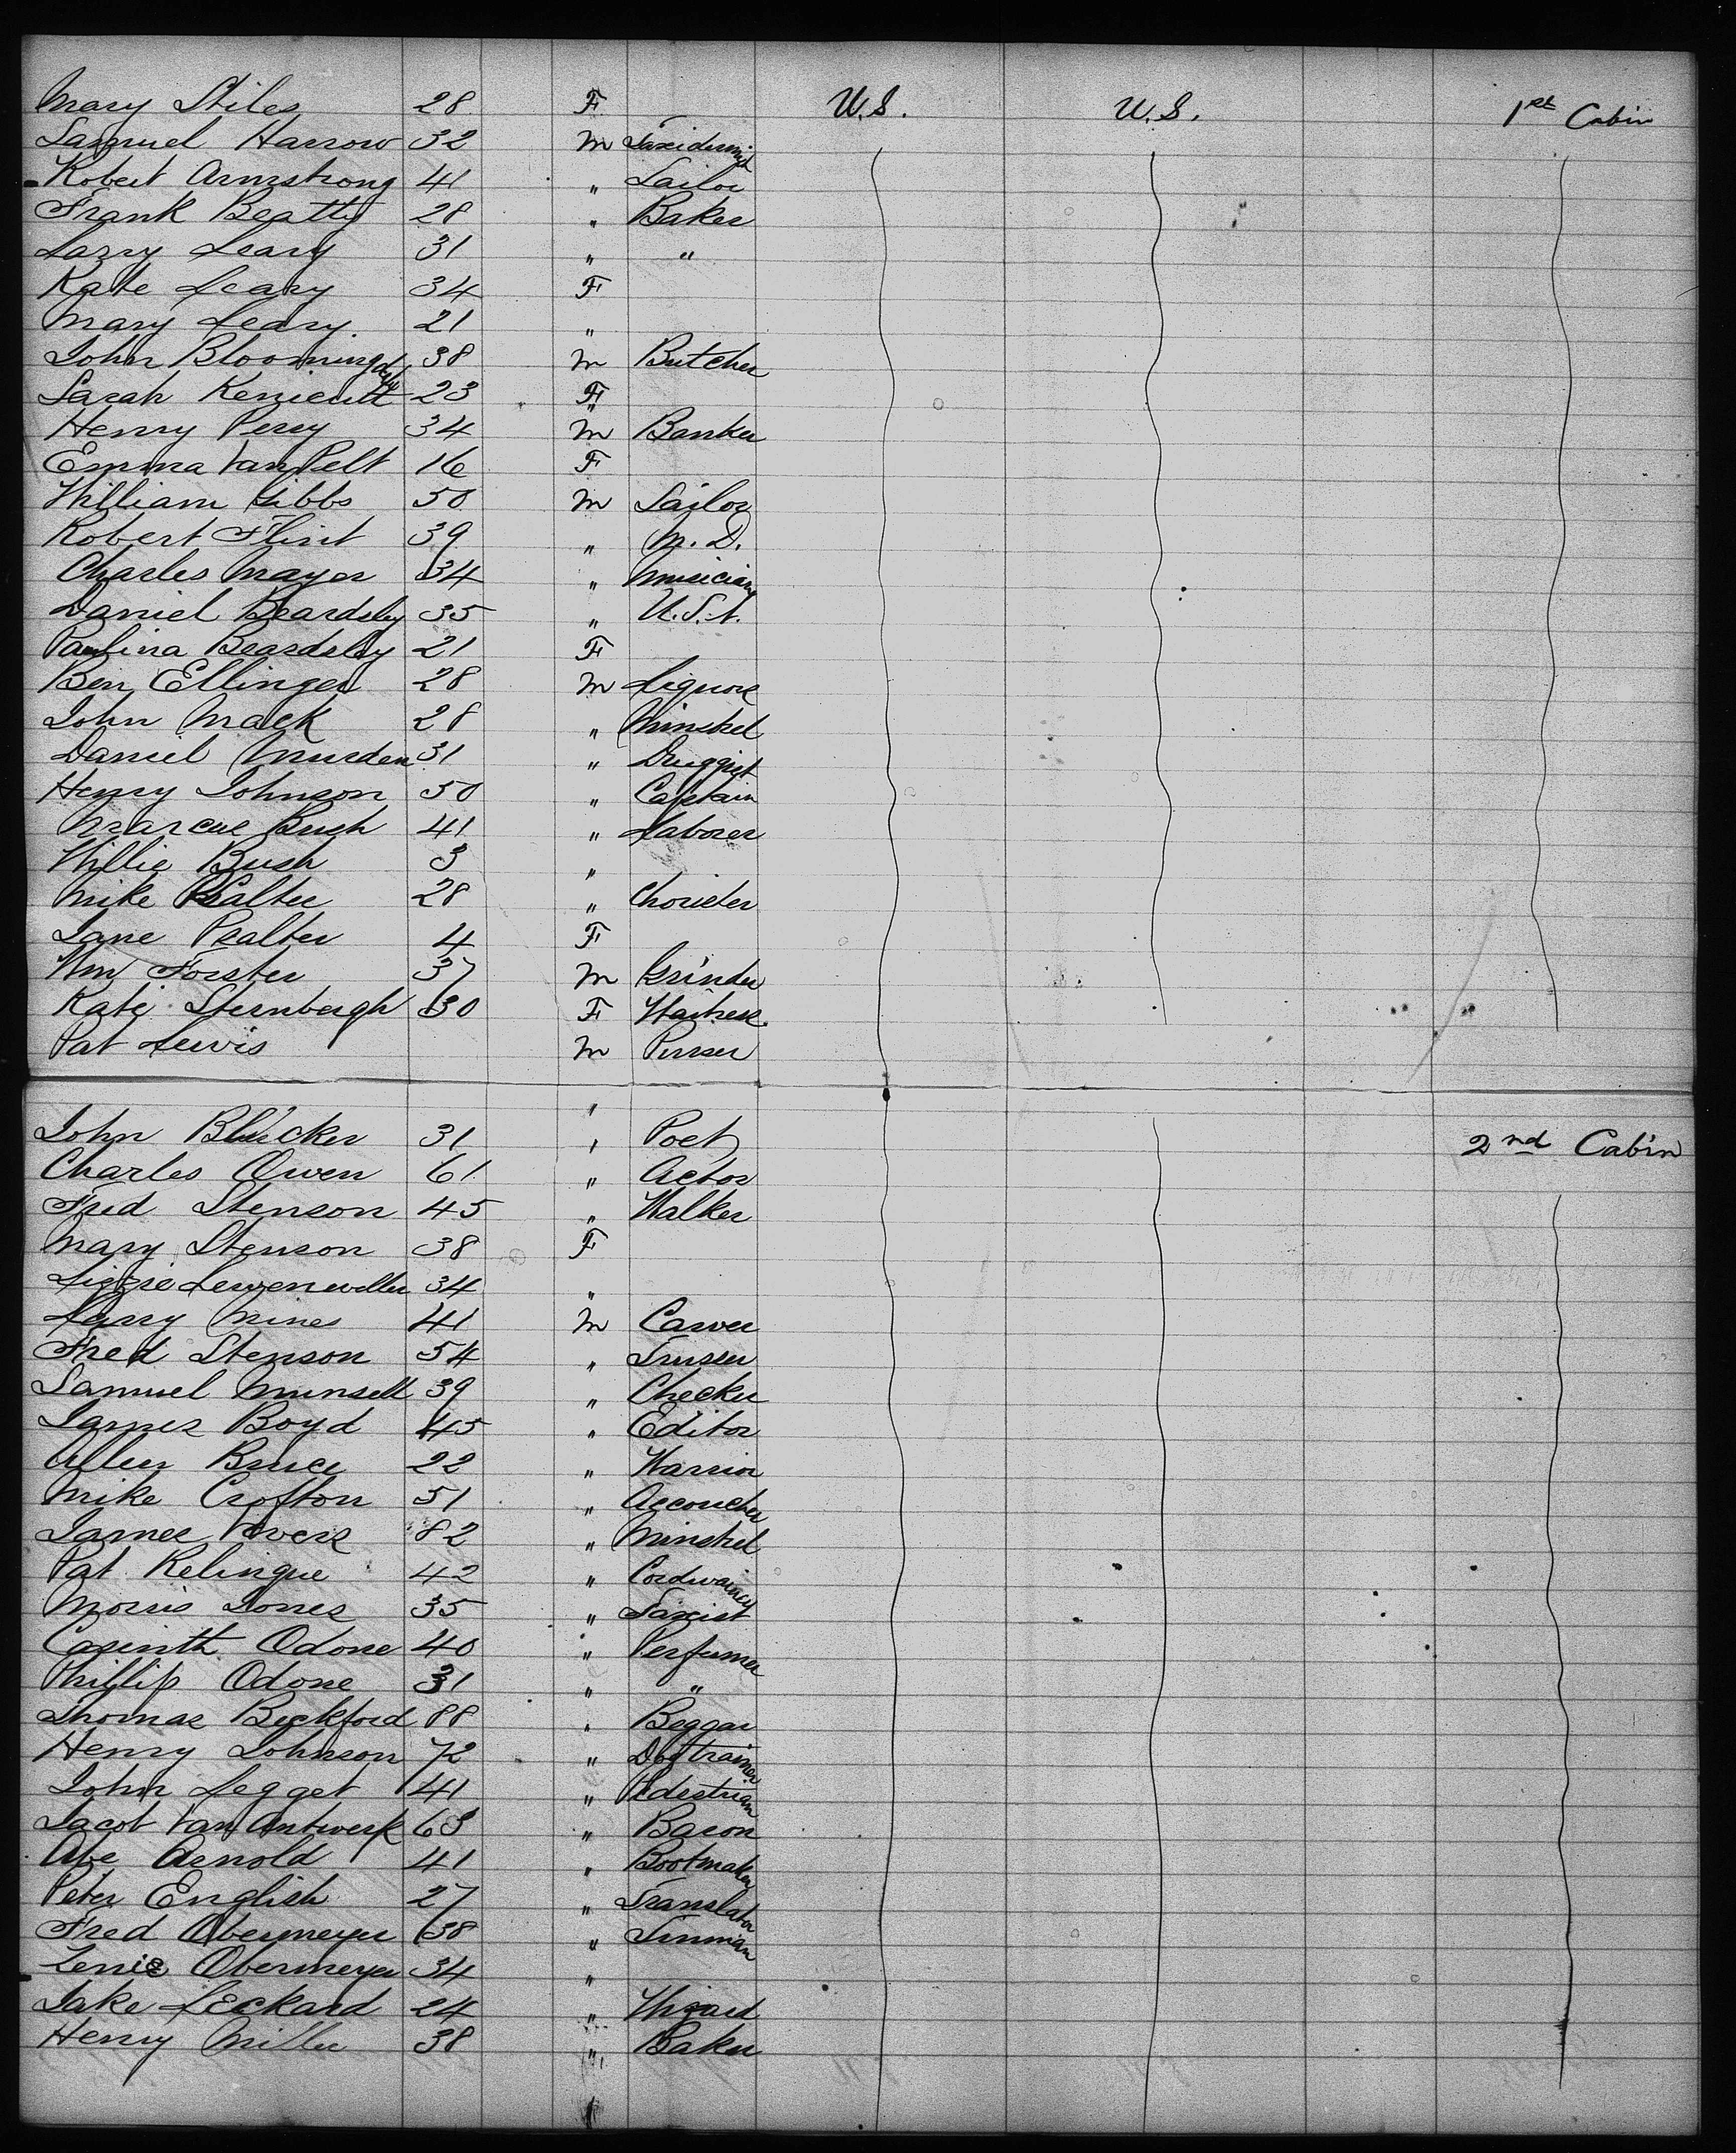 Mary Stiles 28 F U.S. U.S. 1st Cabin
Samuel Harrow 32 M Taxidermist
Robert Armstrong 41 " Sailor
Frank Beatty 28 " Baker
Larry Leary 31 " "
Kate Leary 34 F
Mary Leary 21 "
John Bloomingdale 38 M Butcher
Sarah Kenicutt 23 F
Henry Percy 34 M Banker
Emma Van Pelt 16 F
William Gibbs 50 M Sailor
Robert Flint 39 " M.D.
Charles Mayer 34 " Musician
Daniel Beardsley 35 " U.S.A.
Paulina Beardsley 21 F
Ben Ellinger 28 M Liquors
John Mack 28 " Minstrel
Daniel Murden 31 " Druggist
Henry Johnson 50 " Captain
Marcus Bush 41 " Laborer
Willie Bush 3 "
Mike Psalter 28 " Chorister
Jane Psalter 4 F
Wm Forster 37 M Grinder
Kate Sternbergh 30 F Waitress
Pat Lewis M Purser
"
John Blücker 31 " Poet 2nd Cabin
Charles Owen 61 " Actor
Fred Stenson 45 " Walker
Mary Stenson 38 F
Lizzie 34 "
Harry Mines 41 M Carver
Fred Stenson 54 "
Samuel Munsell 39 " Checker
James Boyd 45 " Editor
Allen Bruce 22 " Warrior
Mike Crofton 51 " Accoucher
James 82 " Minstrel
Pat Kelingue 42 "
Morris Jones 35 " Taxist
Odone 40 " Perfumer
Phillip Odone 31 " "
Thomas Beckford 88 " Beggar
Henry Johnson 72 " Dogtrainer
John Legget 41 " Pedestrian
Jacob Van Antwerp 63 " Bacon
Abe Arnold 41 " Bootmaker
Peter English 27 " Translator
Fred Obermeyer 38 " Tinman
Obermeyer 34 "
Jake Leckard 24 " Wizard
Henry Miller 38 " Baker